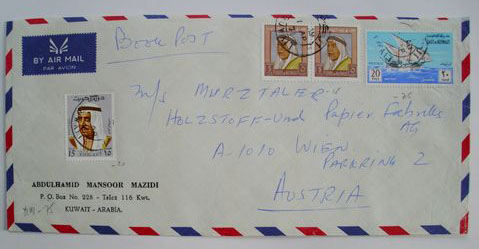 BY AIR MAIL
PAR AVION
Book Post
STATE OF KUWAIT
20
٢٠
15
١٥
KUWAIT
M/s MURZTALER-
HOLZSTOFF-Und Papier
AG
A-1010 WIEN
PARKRING 2
AUSTRIA
ABDULHAMID MANSOOR MAZIDI
P. O. Box No. 228 - Telex 116 Kwt.
KUWAIT - ARABIA.